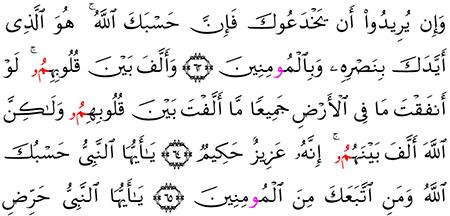 وَإِن يُرِيدُوا۟ أَن يَخْدَعُوكَ فَإِنَّ حَسْبَكَ ٱللَّهُ ۚ هُوَ ٱلَّذِى
أَيَّدَكَ بِنَصْرِهِۦ وَبِٱلْمُومِنِينَ ٦٣ وَأَلَّفَ بَيْنَ قُلُوبِهِمُۥ ۚ لَوْ
أَنفَقْتَ مَا فِى ٱلْأَرْضِ جَمِيعًا مَّا أَلَّفْتَ بَيْنَ قُلُوبِهِمُۥ وَلَـٰكِنَّ
ٱللَّهَ أَلَّفَ بَيْنَهُمُۥ ۚ إِنَّهُۥ عَزِيزٌ حَكِيمٌ ٦٤ يَـٰأَيُّهَا ٱلنَّبِىُّ حَسْبُكَ
ٱللَّهُ وَمَنِ ٱتَّبَعَكَ مِنَ ٱلْمُومِنِينَ ٦٥ يَـٰأَيُّهَا ٱلنَّبِىُّ حَرِّضِ